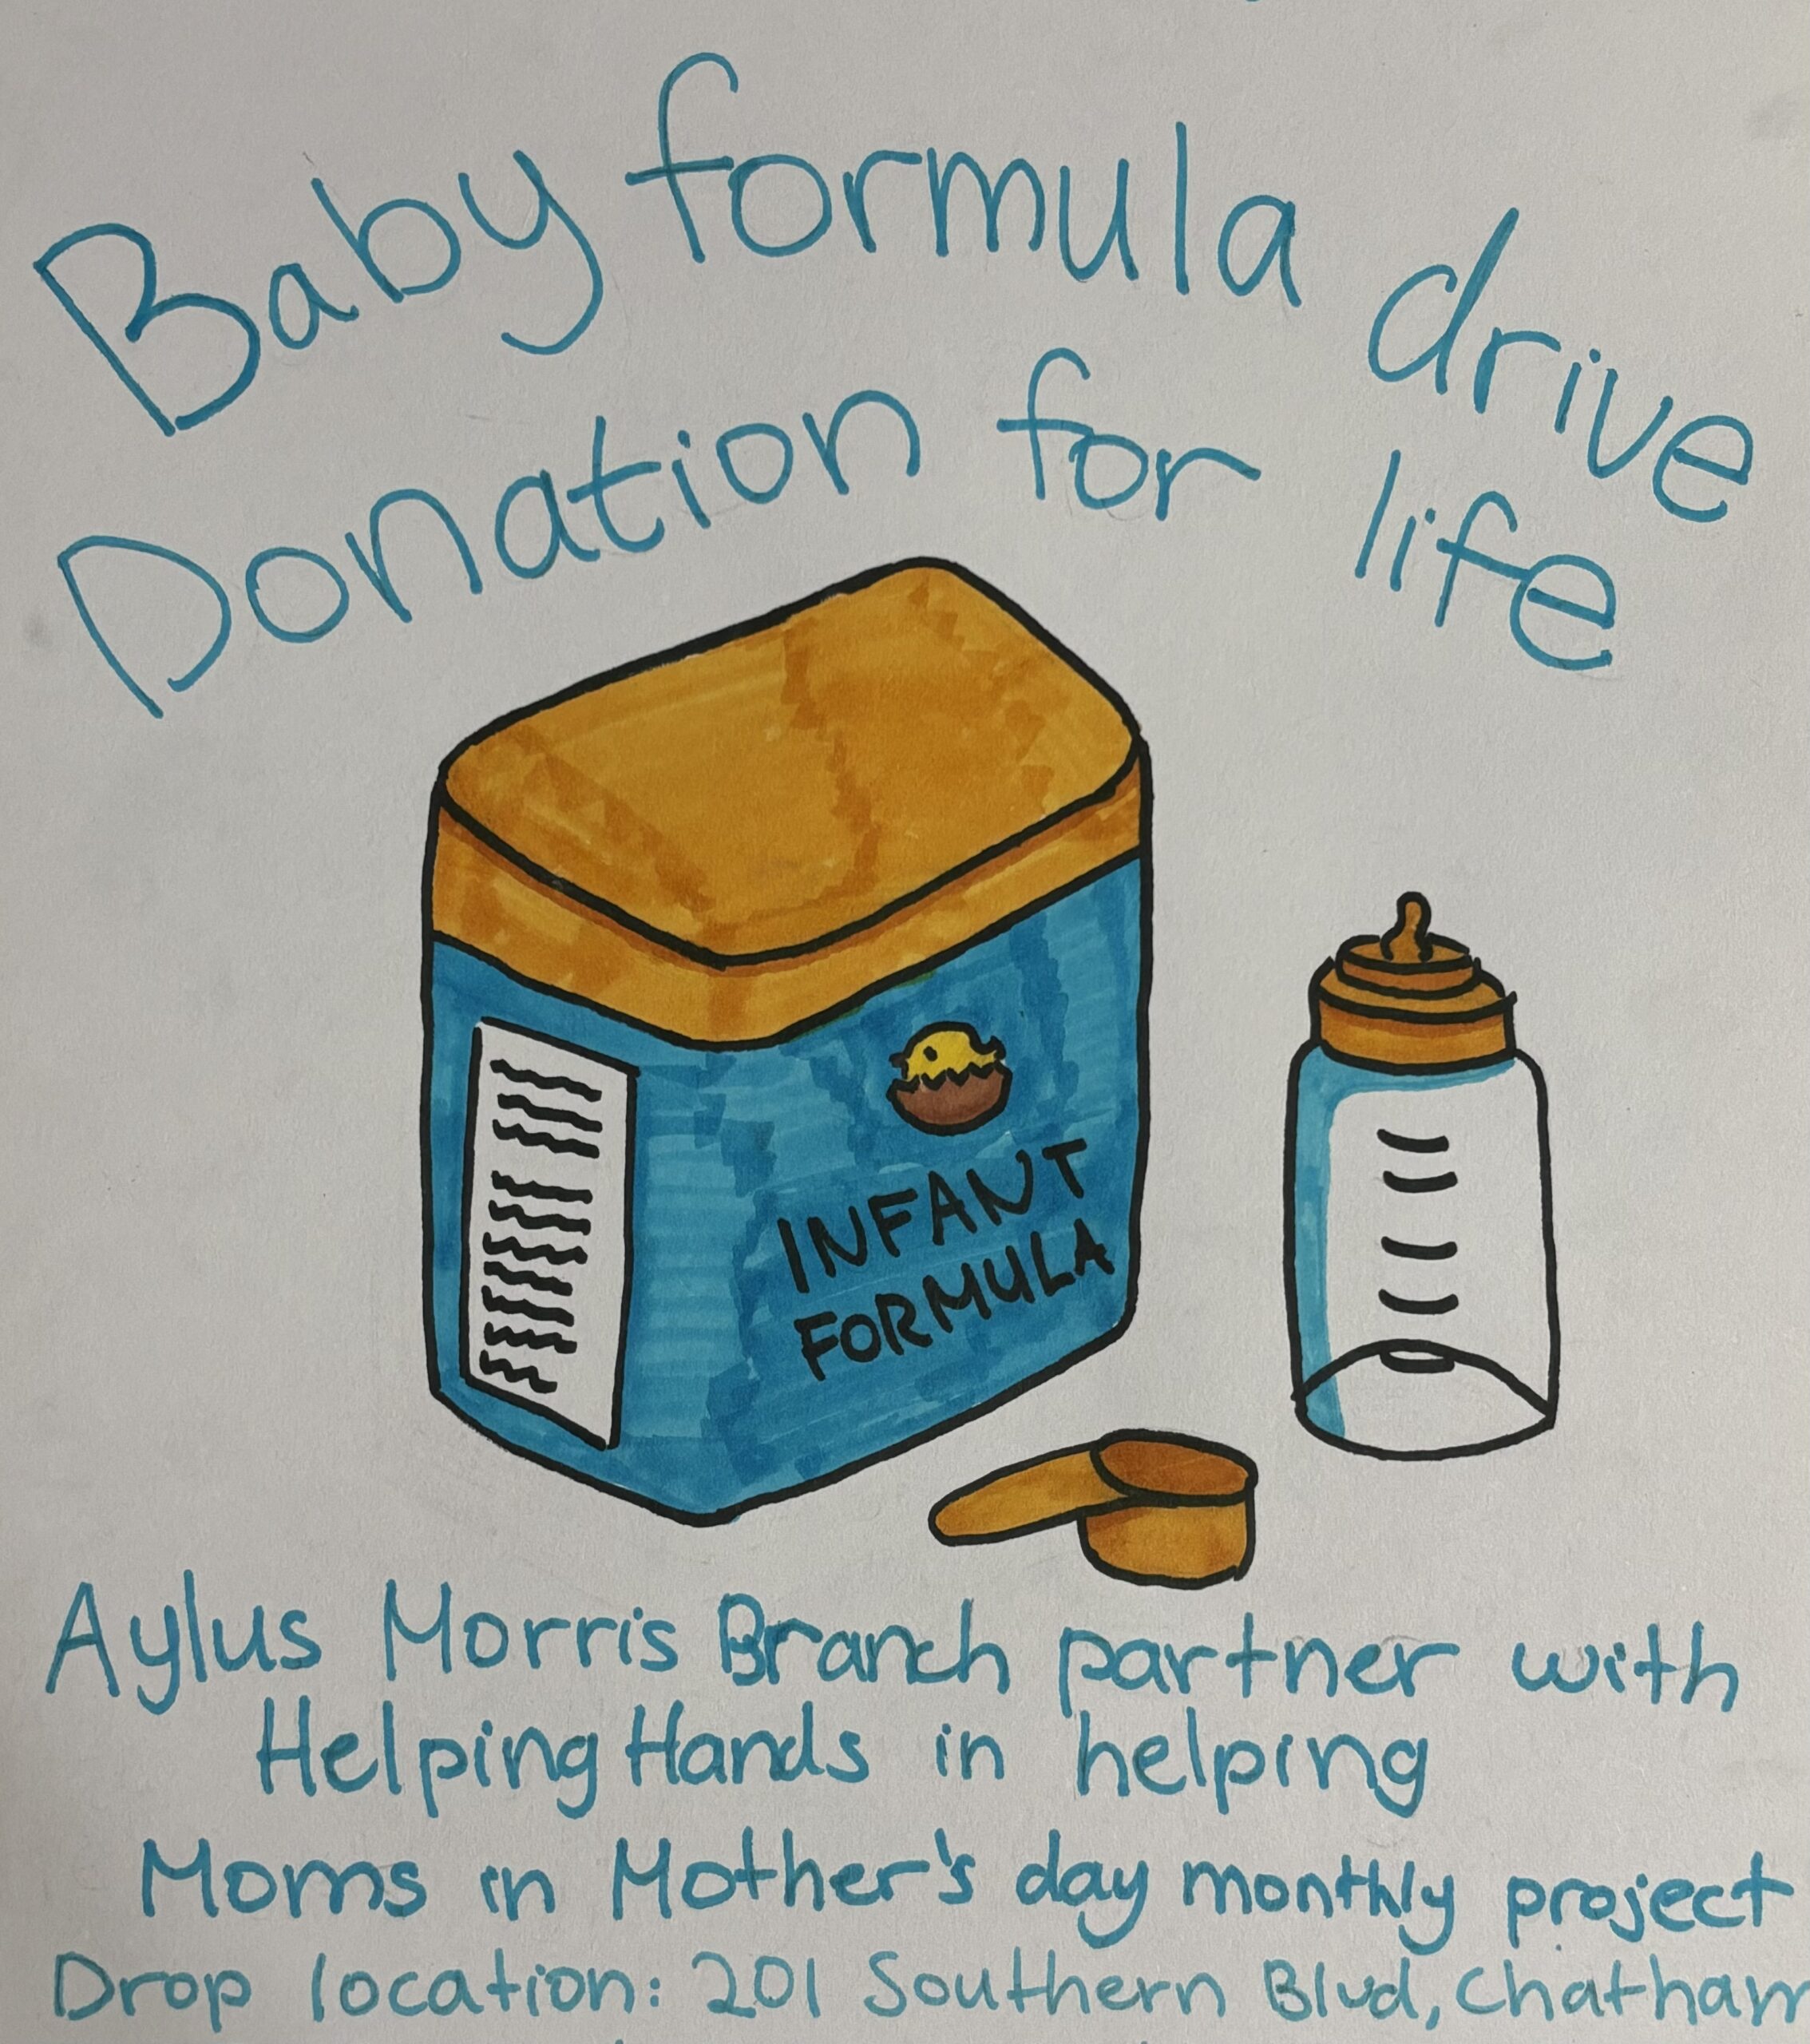 Baby formula drive
Donation for life
INFANT
FORMULA
Aylus Morris Branch partner with
Helping Hands in helping
Moms in Mother's day monthly project
Drop location: 201 Southern Blvd, Chatham